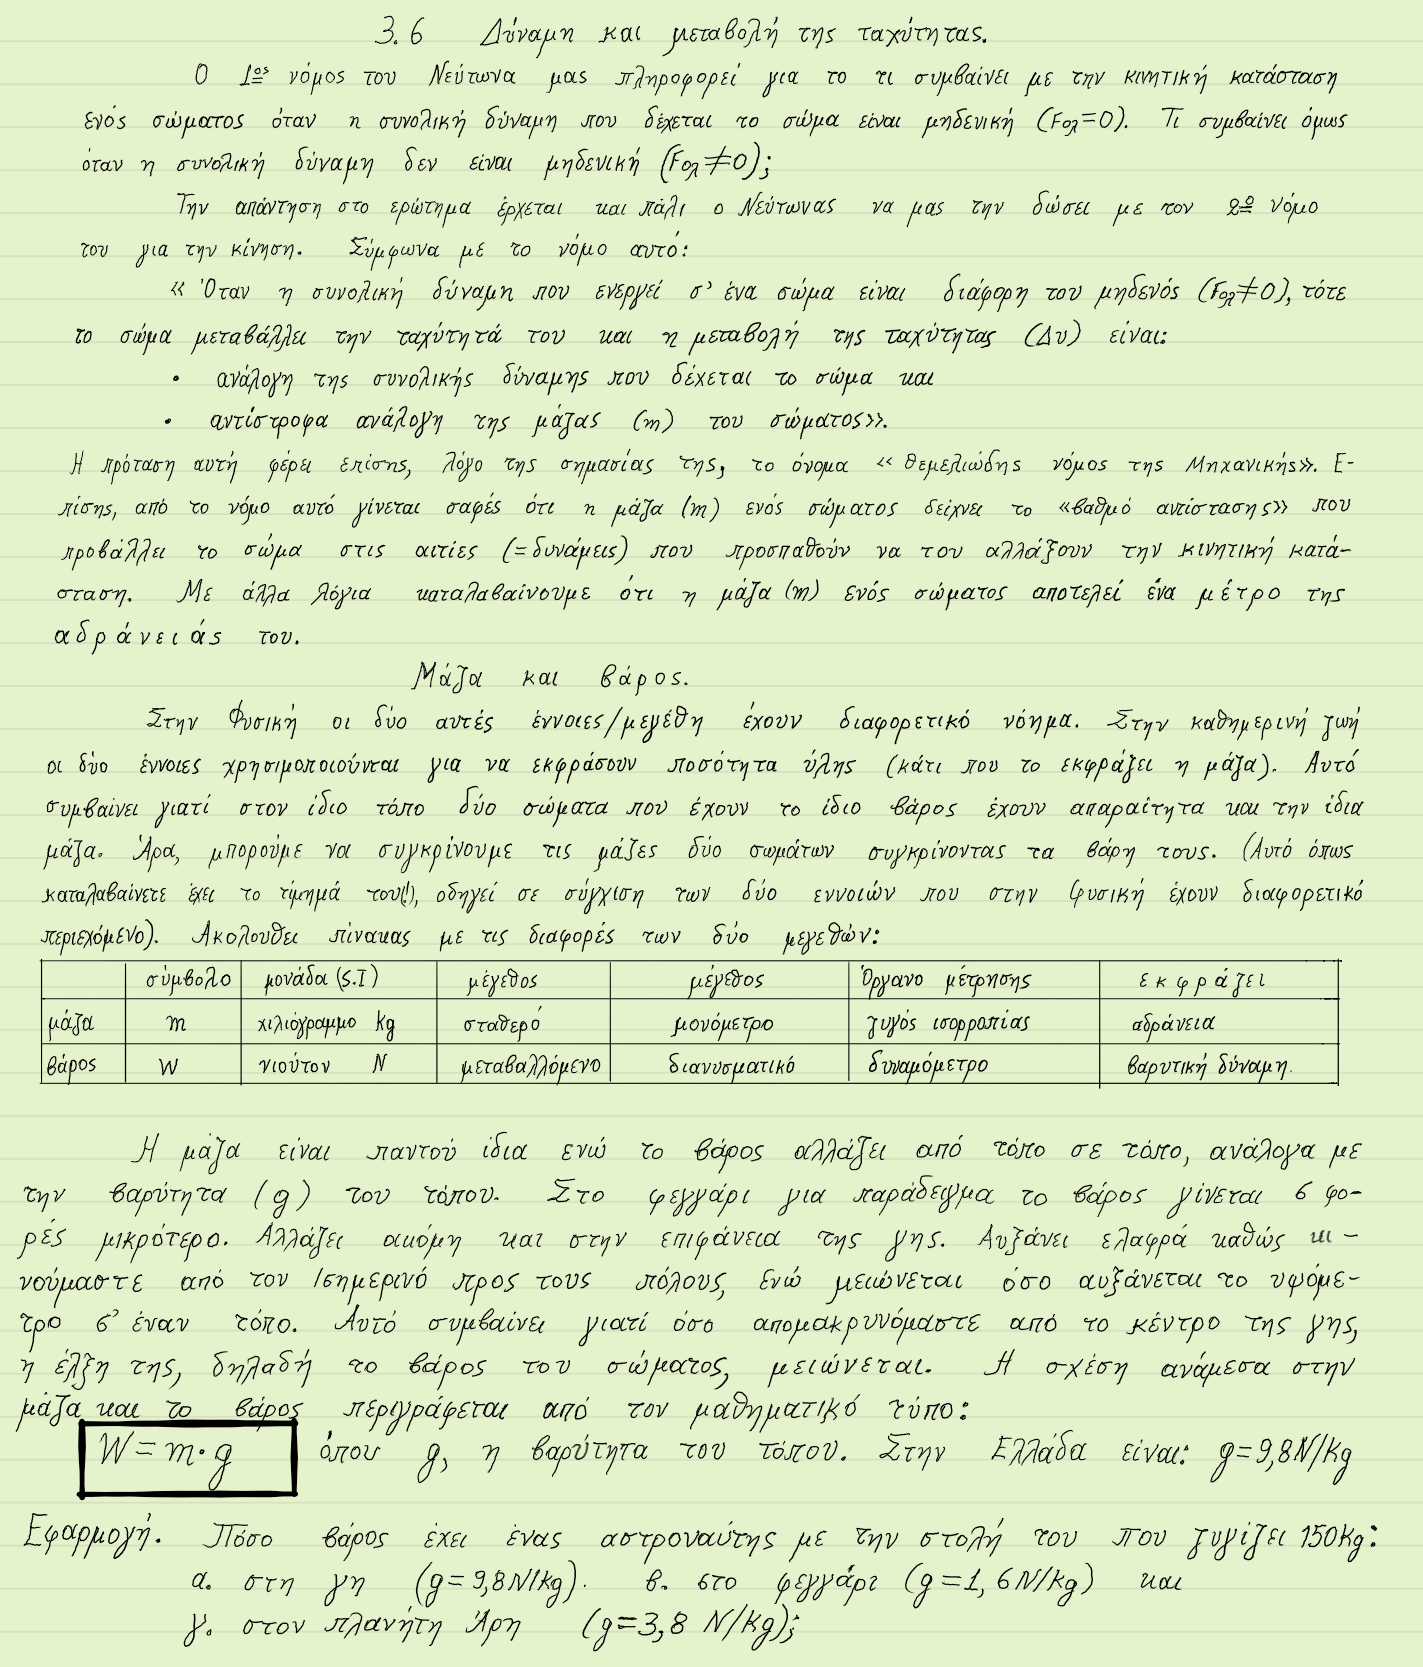 3.6 Δύναμη και μεταβολή της ταχύτητας.
Ο 1ος νόμος του Νεύτωνα μας πληροφορεί για το τι συμβαίνει με την κινητική κατάσταση
ενός σώματος όταν η συνολική δύναμη που δέχεται το σώμα είναι μηδενική (Fολ=0). Τι συμβαίνει όμως
όταν η συνολική δύναμη δεν είναι μηδενική (Fολ≠0);
Την απάντηση στο ερώτημα έρχεται και πάλι ο Νεύτωνας να μας την δώσει με τον 2ο νόμο
του για την κίνηση. Σύμφωνα με το νόμο αυτό:
« Όταν η συνολική δύναμη που ενεργεί σ' ένα σώμα είναι διάφορη του μηδενός (Fολ≠0), τότε
το σώμα μεταβάλλει την ταχύτητά του και η μεταβολή της ταχύτητας (Δυ) είναι:
• ανάλογη της συνολικής δύναμης που δέχεται το σώμα και
• αντίστροφα ανάλογη της μάζας (m) του σώματος».
Η πρόταση αυτή φέρει επίσης, λόγο της σημασίας της, το όνομα « θεμελιώδης νόμος της Μηχανικής». Ε-
πίσης, από το νόμο αυτό γίνεται σαφές ότι η μάζα (m) ενός σώματος δείχνει το «βαθμό αντίστασης» που
προβάλλει το σώμα στις αιτίες (=δυνάμεις) που προσπαθούν να του αλλάξουν την κινητική κατά-
σταση. Με άλλα λόγια καταλαβαίνουμε ότι η μάζα (m) ενός σώματος αποτελεί ένα μέτρο της
αδράνειάς του.
Μάζα και βάρος.
Στην Φυσική οι δύο αυτές έννοιες/μεγέθη έχουν διαφορετικό νόημα. Στην καθημερινή ζωή
οι δύο έννοιες χρησιμοποιούνται για να εκφράσουν ποσότητα ύλης (κάτι που το εκφράζει η μάζα). Αυτό
συμβαίνει γιατί στον ίδιο τόπο δύο σώματα που έχουν το ίδιο βάρος έχουν απαραίτητα και την ίδια
μάζα. Άρα, μπορούμε να συγκρίνουμε τις μάζες δύο σωμάτων συγκρίνοντας τα βάρη τους. (Αυτό όπως
καταλαβαίνετε έχει το τίμημά του(!), οδηγεί σε σύγχιση των δύο εννοιών που στην Φυσική έχουν διαφορετικό
περιεχόμενο). Ακολουθει πίνακας με τις διαφορές των δύο μεγεθών:
σύμβολο μονάδα (S.I) μέγεθος μέγεθος Όργανο μέτρησης εκφράζει
μάζα m χιλιόγραμμο kg σταθερό μονόμετρο ζυγός ισορροπίας αδράνεια
βάρος W νιούτον N μεταβαλλόμενο διανυσματικό δυναμόμετρο βαρυτική δύναμη.
Η μάζα είναι παντού ίδια ενώ το βάρος αλλάζει από τόπο σε τόπο, ανάλογα με
την βαρύτητα (g) του τόπου. Στο φεγγάρι για παράδειγμα το βάρος γίνεται 6 φο-
ρές μικρότερο. Αλλάζει ακόμη και στην επιφάνεια της γης. Αυξάνει ελαφρά καθώς κι-
νούμαστε από τον Ισημερινό προς τους πόλους, ενώ μειώνεται όσο αυξάνεται το υψόμε-
τρο σ' έναν τόπο. Αυτό συμβαίνει γιατί όσο απομακρυνόμαστε από το κέντρο της γης,
η έλξη της, δηλαδή το βάρος του σώματος, μειώνεται. Η σχέση ανάμεσα στην
μάζα και το βάρος περιγράφεται από τον μαθηματικό τύπο:
W=m·g όπου g, η βαρύτητα του τόπου. Στην Ελλάδα είναι: g=9,8N/kg
Εφαρμογή. Πόσο βάρος έχει ένας αστροναύτης με την στολή του που ζυγίζει 150kg:
α. στη γη (g=9,8N/kg). β. στο φεγγάρι (g=1,6N/kg) και
γ. στον πλανήτη Άρη (g=3,8 N/kg);